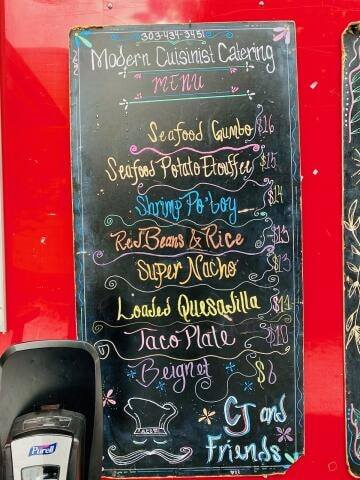 303-434-3451
Modern Cuisinist Catering
MENU
Seafood Gumbo $16
Seafood Potato Etouffee $15
Shrimp Po'boy $14
Red Beans & Rice $13
Super Nacho $13
Loaded Quesadilla $11
Taco Plate $10
Beignet $6
CJ and
Friends
Purell